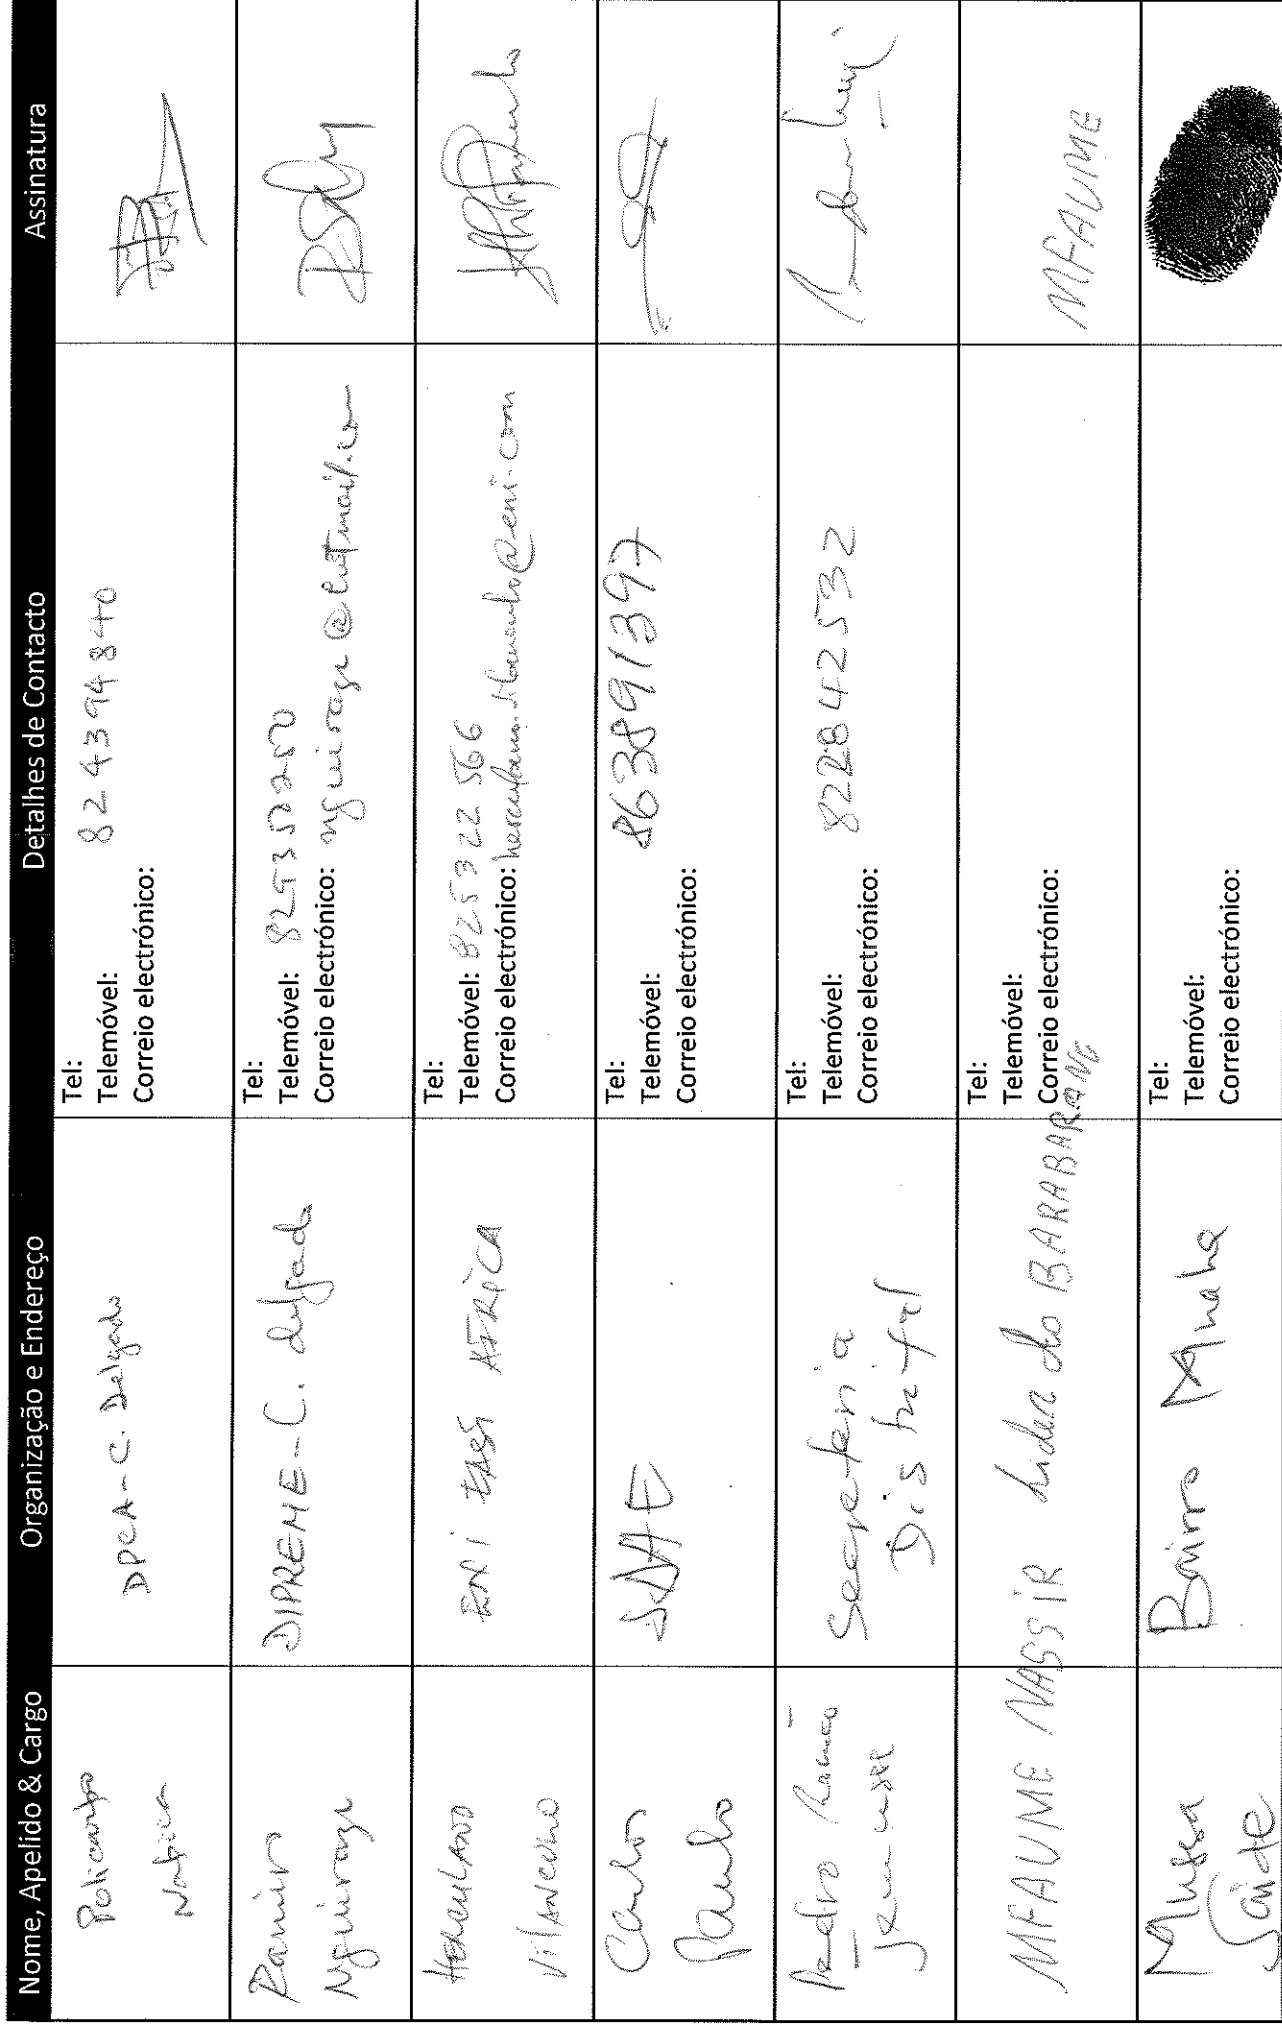 Nome, Apelido & Cargo Organização e Endereço Detalhes de Contacto Assinatura
Policarpo
Napica
DPCA-C. Delgado
Tel:
Telemóvel: 824394840
Correio electrónico:
Ramiro
Nguiraze
DIPREME-C. delgado
Tel:
Telemóvel: 829352250
Correio electrónico: nguiraze@hotmail.com
HERCULANO
VILANCULO
ENI EAST AFRICA
Tel:
Telemóvel: 825322566
Correio electrónico: herculano.vilanculo@eni.com
Carlos
Paulo
SDAE
Tel:
Telemóvel: 863891397
Correio electrónico:
Pedro Romão
Secretaria
Distrital
Tel:
Telemóvel: 822842532
Correio electrónico:
MFAUME NASSIR
Lider do BARABARANE
Tel:
Telemóvel:
Correio electrónico:
MFAUME
Mussa
Saide
Bairro
Tel:
Telemóvel:
Correio electrónico: